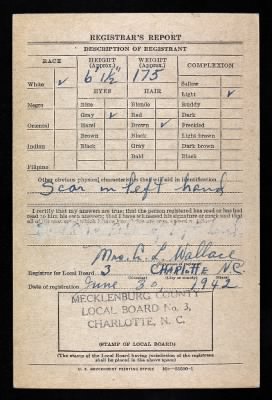 REGISTRAR'S REPORT
DESCRIPTION OF REGISTRANT
RACE HEIGHT (Approx.) WEIGHT (Approx.) COMPLEXION
White ✓ 6' 1½" 175 Sallow
EYES HAIR Light ✓
Negro Blue Blonde Ruddy
Gray ✓ Red Dark
Oriental Hazel Brown ✓ Freckled
Brown Black Light brown
Indian Black Gray Dark brown
Bald Black
Filipino
Other obvious physical characteristics that will aid in identification
Scar on left hand
I certify that my answers are true; that the person registered has read or has had
read to him his own answers; that I have witnessed his signature or mark and that all
Mrs. L. Wallace
Registrar for Local Board 3 CHARLOTTE N.C.
Date of registration June 30, 1942
MECKLENBURG COUNTY
LOCAL BOARD No. 3,
CHARLOTTE, N. C.
(STAMP OF LOCAL BOARD)
(The stamp of the Local Board having jurisdiction of the registrant
shall be placed in the above space.)
U. S. GOVERNMENT PRINTING OFFICE